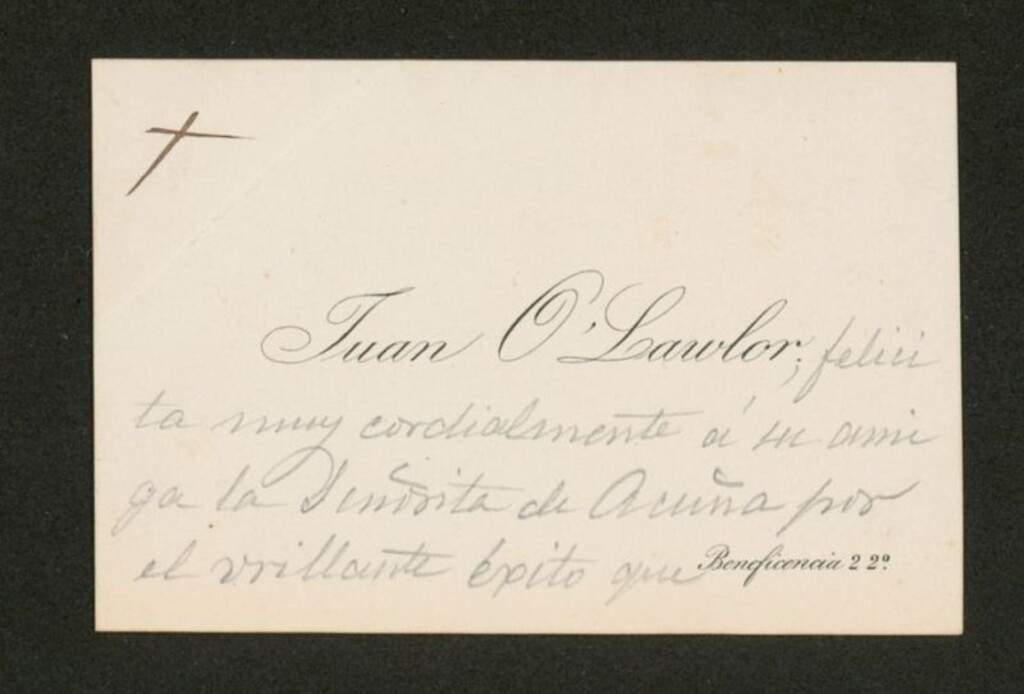 Juan O'Lawlor, felici
ta muy cordialmente á su ami
ga la Señorita de Acuña por
el vrillante éxito que
Beneficencia 2 2º